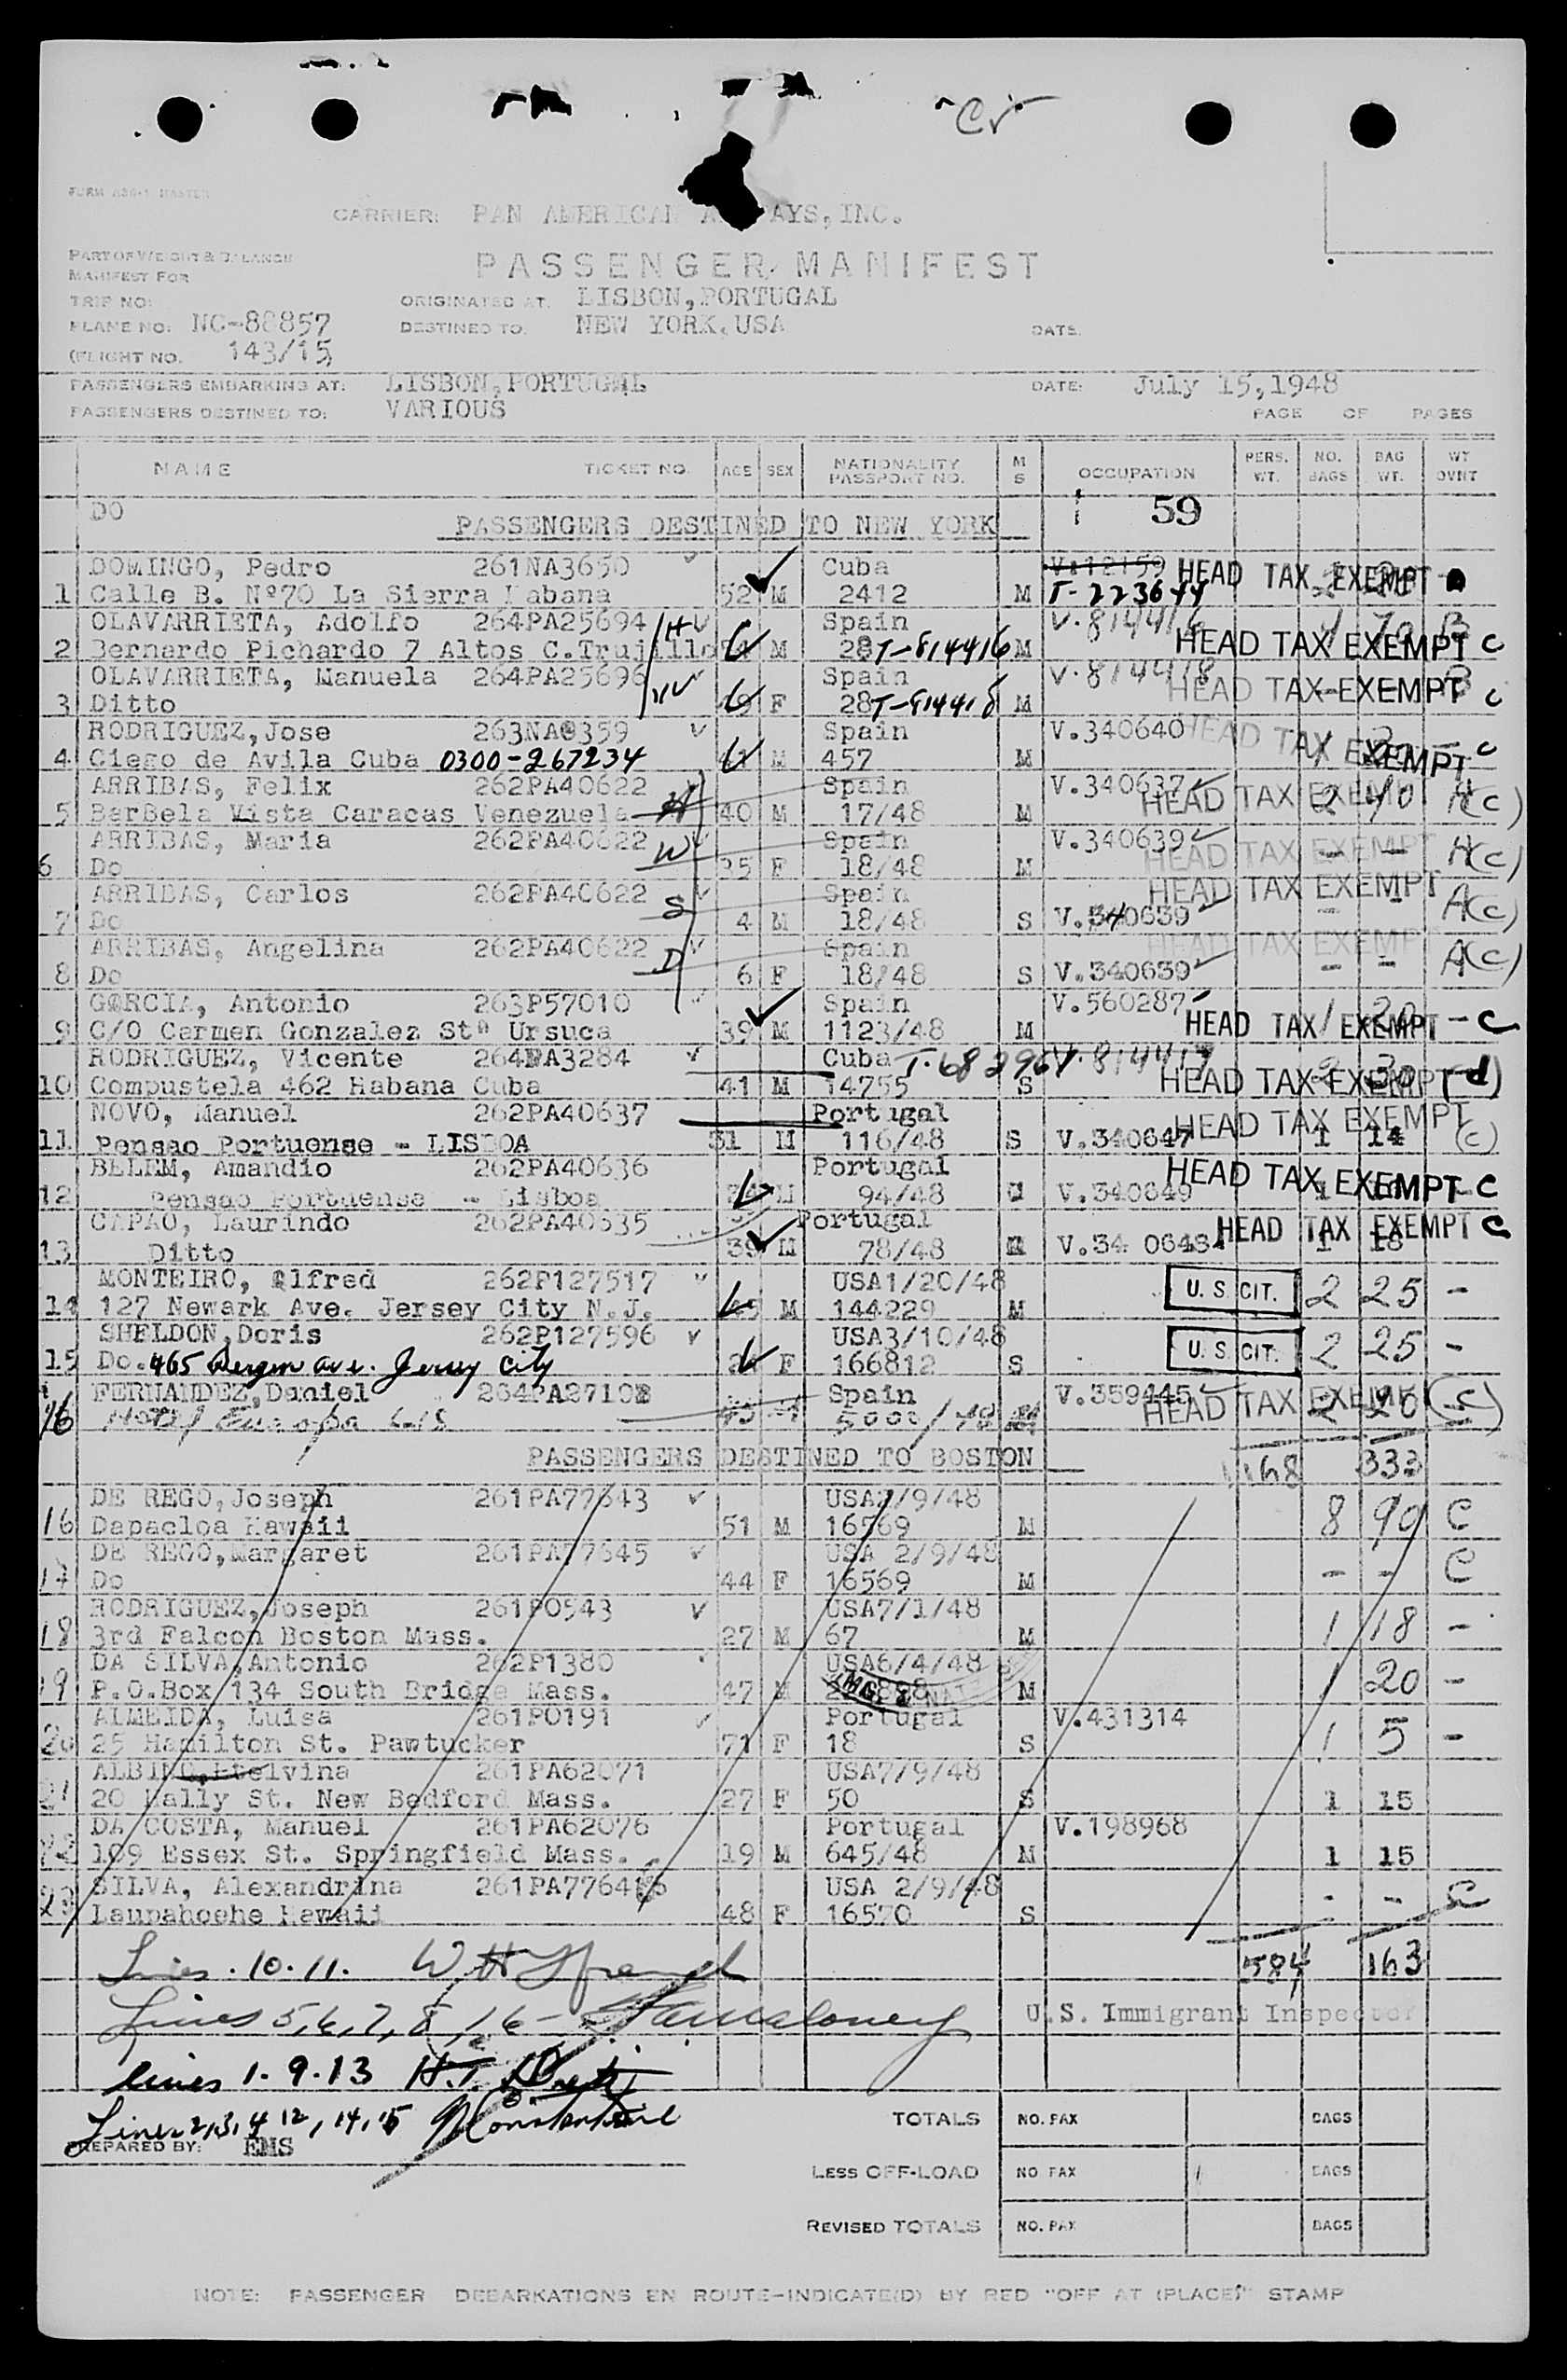 Cr
FORM
CARRIER: PAN AMERICAN AYS, INC.
PART OF WEIGHT & BALANCE
MANIFEST FOR
PASSENGER MANIFEST
TRIP NO: ORIGINATED AT: LISBON, PORTUGAL
PLANE NO: NC-88857 DESTINED TO: NEW YORK, USA DATE:
(FLIGHT NO. 143/15
PASSENGERS EMBARKING AT: LISBON, PORTUGAL DATE: July 15, 1948
PASSENGERS DESTINED TO: VARIOUS PAGE OF PAGES
NAME TICKET NO. AGE SEX NATIONALITY PASSPORT NO. M S OCCUPATION PERS. WT. NO. BAGS BAG WT. WT OVNT
DO PASSENGERS DESTINED TO NEW YORK 59
DOMINGO, Pedro 261NA3650 Cuba V:12159 HEAD TAX EXEMPT
1 Calle B. Nº70 La Sierra Habana 52 M 2412 M T-223644
OLAVARRIETA, Adolfo 264PA25694 H Spain V.814416
2 Bernardo Pichardo 7 Altos C.Trujillo M 28 T-814416 M HEAD TAX EXEMPT C
OLAVARRIETA, Manuela 264PA25696 W Spain V.814418
3 Ditto F 28 T-814418 M HEAD TAX EXEMPT C
RODRIGUEZ, Jose 263NA0359 Spain V.340640 HEAD TAX EXEMPT C
4 Ciego de Avila Cuba 0300-267234 M 457 M
ARRIBAS, Felix 262PA40622 Spain V.340637
5 BarBela Vista Caracas Venezuela H 40 M 17/48 M HEAD TAX EXEMPT 2 40 A(C)
ARRIBAS, Maria 262PA40622 Spain V.340639
6 Do W 35 F 18/48 M HEAD TAX EXEMPT - - A(C)
ARRIBAS, Carlos 262PA40622 Spain HEAD TAX EXEMPT
7 Do S 4 M 18/48 S V.340639 - - A(C)
ARRIBAS, Angelina 262PA40622 Spain HEAD TAX EXEMPT
8 Do D 6 F 18/48 S V.340639 - - A(C)
GARCIA, Antonio 263P57010 Spain V.560287
9 C/O Carmen Gonzalez Stª Ursuca 39 M 1123/48 M HEAD TAX EXEMPT - C
RODRIGUEZ, Vicente 264NA3284 Cuba T.68296 V.814417
10 Compustela 462 Habana Cuba 41 M 14755 S HEAD TAX EXEMPT (d)
NOVO, Manuel 262PA40637 Portugal HEAD TAX EXEMPT
11 Pensao Portuense - LISBOA 31 M 116/48 S V.340647 1 14 (C)
BELEM, Amandio 262PA40636 Portugal HEAD TAX EXEMPT C
12 Pensao Portuense - Lisboa M 94/48 V.340649
CAPAO, Laurindo 262PA40635 Portugal HEAD TAX EXEMPT C
13 Ditto 39 M 78/48 M V.34 0648 1 18
MONTEIRO, Alfred 262P127517 USA1/20/48
14 127 Newark Ave. Jersey City N.J. M 144229 M U.S. CIT. 2 25 -
SHELDON, Doris 262P127596 USA3/10/48
15 Do. 465 Bergen Ave. Jersey City F 166812 S U.S. CIT. 2 25 -
FERNANDEZ, Daniel 264PA2710 Spain V.359445
16 Hotel Europa 5000/48 HEAD TAX EXEMPT 2 20 (C)
PASSENGERS DESTINED TO BOSTON 1168 333
DE REGO, Joseph 261PA77643 USA2/9/48
16 Dapacloa Hawaii 51 M 16569 M 8 90 C
DE REGO, Margaret 261PA77645 USA 2/9/48
17 Do 44 F 16569 M - - C
RODRIGUEZ, Joseph 261P0543 USA7/1/48
18 3rd Falcon Boston Mass. 27 M 67 M 1 18 -
DA SILVA, Antonio 262P1380 USA6/4/48
19 P.O.Box 134 South Bridge Mass. 47 M M 1 20 -
ALMEIDA, Luisa 261P0191 Portugal V.431314
20 25 Hamilton St. Pawtucker 71 F 18 S 1 5 -
ALBINO, Etelvina 261PA62071 USA7/9/48
21 20 Hally St. New Bedford Mass. 27 F 50 S 1 15
DA COSTA, Manuel 261PA62076 Portugal V.198968
22 109 Essex St. Springfield Mass. 19 M 645/48 M 1 15
SILVA, Alexandrina 261PA77641 USA 2/9/48
23 Laupahoehe Hawaii 48 F 16570 S - - C
Lines . 10. 11. 584 163
Lines 5, 6, 7, 8, 16 - U.S. Immigrant Inspector
lines 1. 9. 13
Lines 2, 3, 4 12, 14, 15
PREPARED BY: EMS
TOTALS NO. PAX BAGS
LESS OFF-LOAD NO PAX BAGS
REVISED TOTALS NO. PAX BAGS
NOTE: PASSENGER DEBARKATIONS EN ROUTE-INDICATE(D) BY RED "OFF AT (PLACE)" STAMP